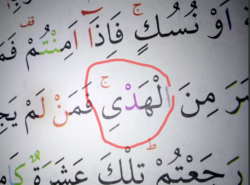 اَوْ نُسُكٍ ۚ فَاِذَآ اَمِنْتُمْ فَمَ
رَ مِنَ الْهَدْيِ ۚ فَمَنْ لَمْ يَجِ
رَجَعْتُمْ ؕ تِلْكَ عَشَرَةٌ كَا